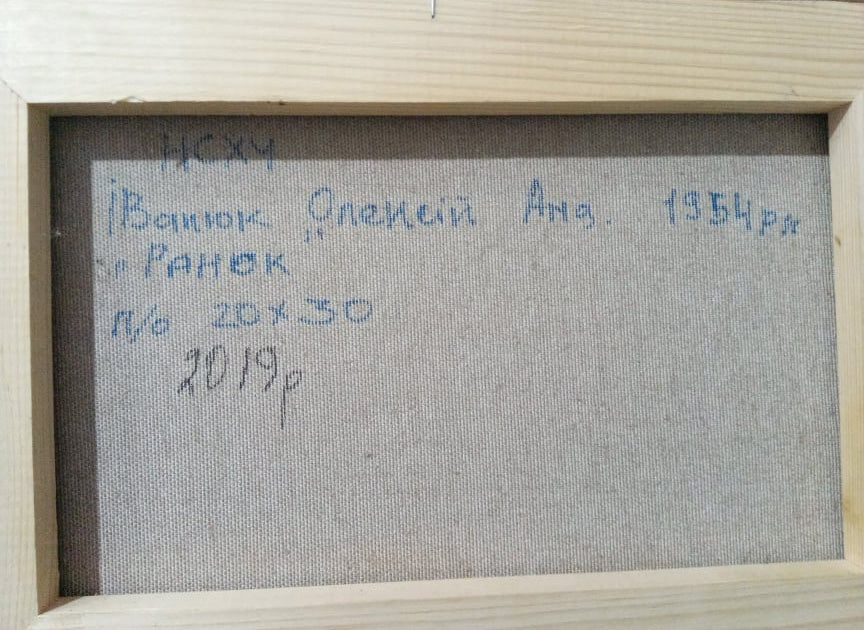 НСХУ
Іванюк Олексій Анд. 1954 р.н
„Ранок"
п/о 20х30
2019р